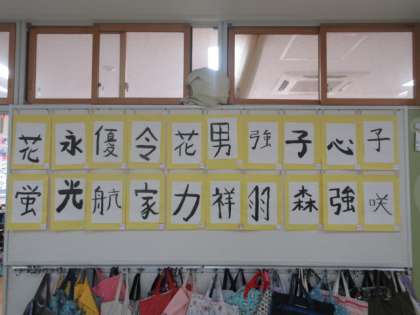 花永優令花男強子心子
蛍光航家力祥羽森強咲